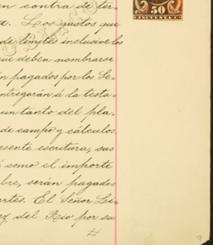 en contra de ter-
Los gastos que
de límites inclusive los
que deben nombrarse
án pagados por los Se-
entregarán á la testa-
un tanto del pla-
de campo y cálculos
presente escritura, sus
sí como el importe
bre, serán pagados
partes. El Señor Le-
del Rio por su
50